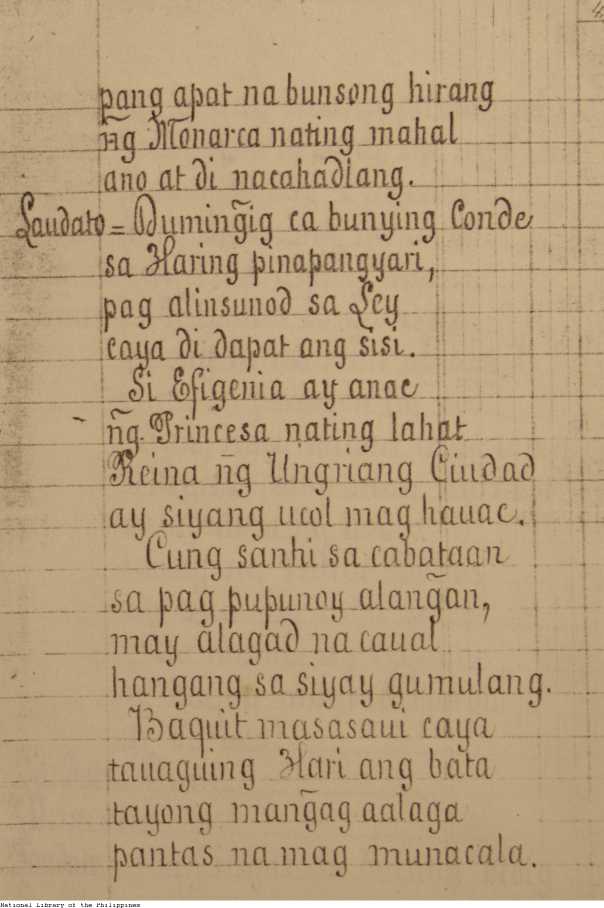 pang apat na bunsong hirang
n͠g Monarca nating mahal
ano at di nacahadlang.
Laudato = Dumin͠gig ca bunying Conde
sa Haring pinapangyari,
pag alinsunod sa Ley
caya di dapat ang sisi.
Si Efigenia ay anac
n͠g Princesa nating lahat
Reina n͠g Ungriang Ciudad
ay siyang ucol mag hauac.
Cung sanhi sa cabataan
sa pag pupunoy alan͠gan,
may alagad na caual
hangang sa siyay gumulang.
Baquit masasaui caya
tauaguing Hari ang bata
tayong man͠gag aalaga
pantas na mag munacala.
National Library of the Philippines